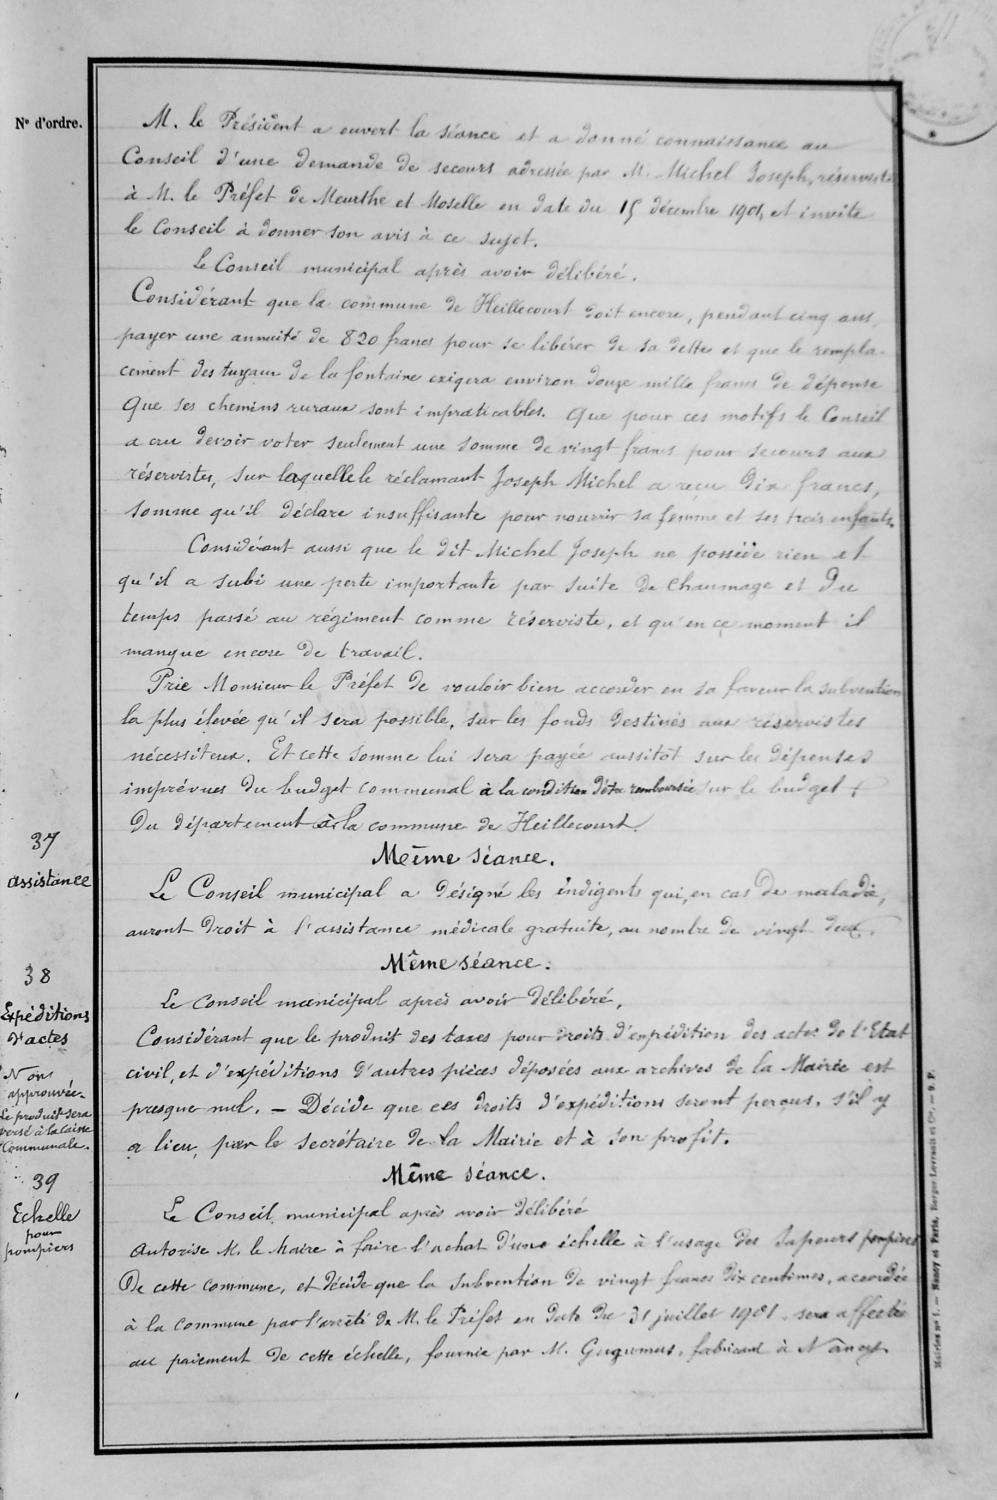 N° d'ordre.
M. le Président a ouvert la séance et a donné connaissance au
Conseil d'une demande de secours adressée par M. Michel Joseph, réserviste
à M. le Préfet de Meurthe et Moselle en date du 15 décembre 1901, et invite
le Conseil à donner son avis à ce sujet.
Le Conseil municipal après avoir délibéré.
Considérant que la commune de Heillecourt doit encore, pendant cinq ans,
payer une annuité de 820 francs pour se libérer de sa dette et que le rempla-
cement des tuyaux de la fontaine exigera environ douze mille francs de dépense
Que ses chemins ruraux sont impraticables. Que pour ces motifs le Conseil
a cru devoir voter seulement une somme de vingt francs pour secours aux
réservistes, sur laquelle le réclamant Joseph Michel a reçu dix francs,
somme qu'il déclare insuffisante pour nourrir sa femme et ses trois enfants.
Considérant aussi que le dit Michel Joseph ne possède rien et
qu'il a subi une perte importante par suite de chaumage et du
temps passé au régiment comme réserviste, et qu'en ce moment il
manque encore de travail.
Prie Monsieur le Préfet de vouloir bien accorder en sa faveur la subvention
la plus élevée qu'il sera possible, sur les fonds destinés aux réservistes
nécessiteux. Et cette somme lui sera payée aussitôt sur les dépenses
imprévues du budget communal à la condition d'être remboursée sur le budget
du département à la commune de Heillecourt.
37
assistance
Même séance.
Le Conseil municipal a désigné les indigents qui, en cas de maladie,
auront droit à l'assistance médicale gratuite, au nombre de vingt deux.
38
Expéditions
d'actes
Non
approuvée.
Le produit sera
versé à la caisse
Communale.
Même séance.
Le Conseil municipal après avoir délibéré,
Considérant que le produit des taxes pour droits d'expédition des actes de l'Etat
civil, et d'expéditions d'autres pièces déposées aux archives de la Mairie est
presque nul. — Décide que ces droits d'expéditions seront perçus, s'il y
a lieu, par le secrétaire de la Mairie et à son profit.
39
Echelle
pour
pompiers
Même séance.
Le Conseil municipal après avoir délibéré
Autorise M. le Maire à faire l'achat d'une échelle à l'usage des Sapeurs pompiers
de cette commune, et décide que la subvention de vingt francs dix centimes, accordée
à la commune par l'arrêté de M. le Préfet en date du 31 juillet 1901, sera affectée
au paiement de cette échelle, fournie par M. Gugumus, fabricant à Nancy
Mairies n° 1. — Nancy et Paris, Berger-Levrault et Cie. — 9. P.